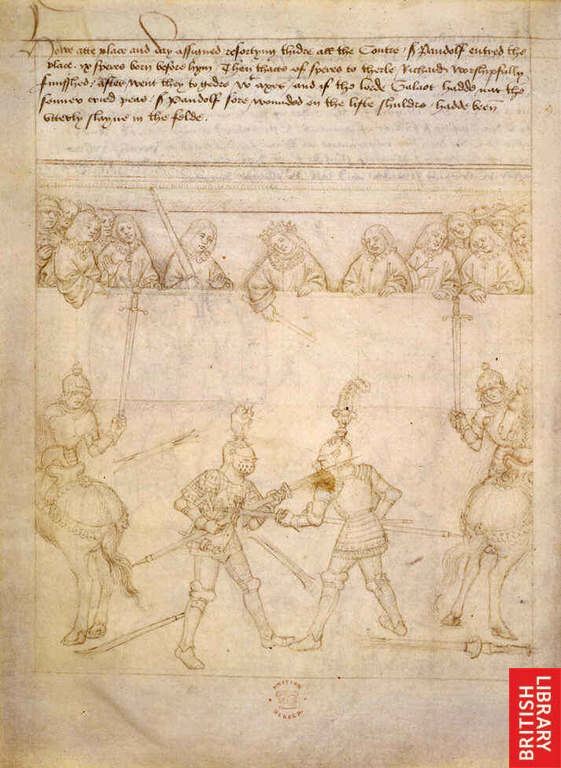 Howe atte place and day assigned resortyng thidre all the Contre / S Pandolf entred the
place . ix speres born before hym . Then thacte of speres to therle Richard worshipfully
fynisshed / after went they to gedre w axes / and if the lorde Galaot hadde nat the
sonner cried peas / S Pandolf sore wounded on the lifte shuldre hadde been
utterly slayne in the felde .
BRITISH
LIBRARY